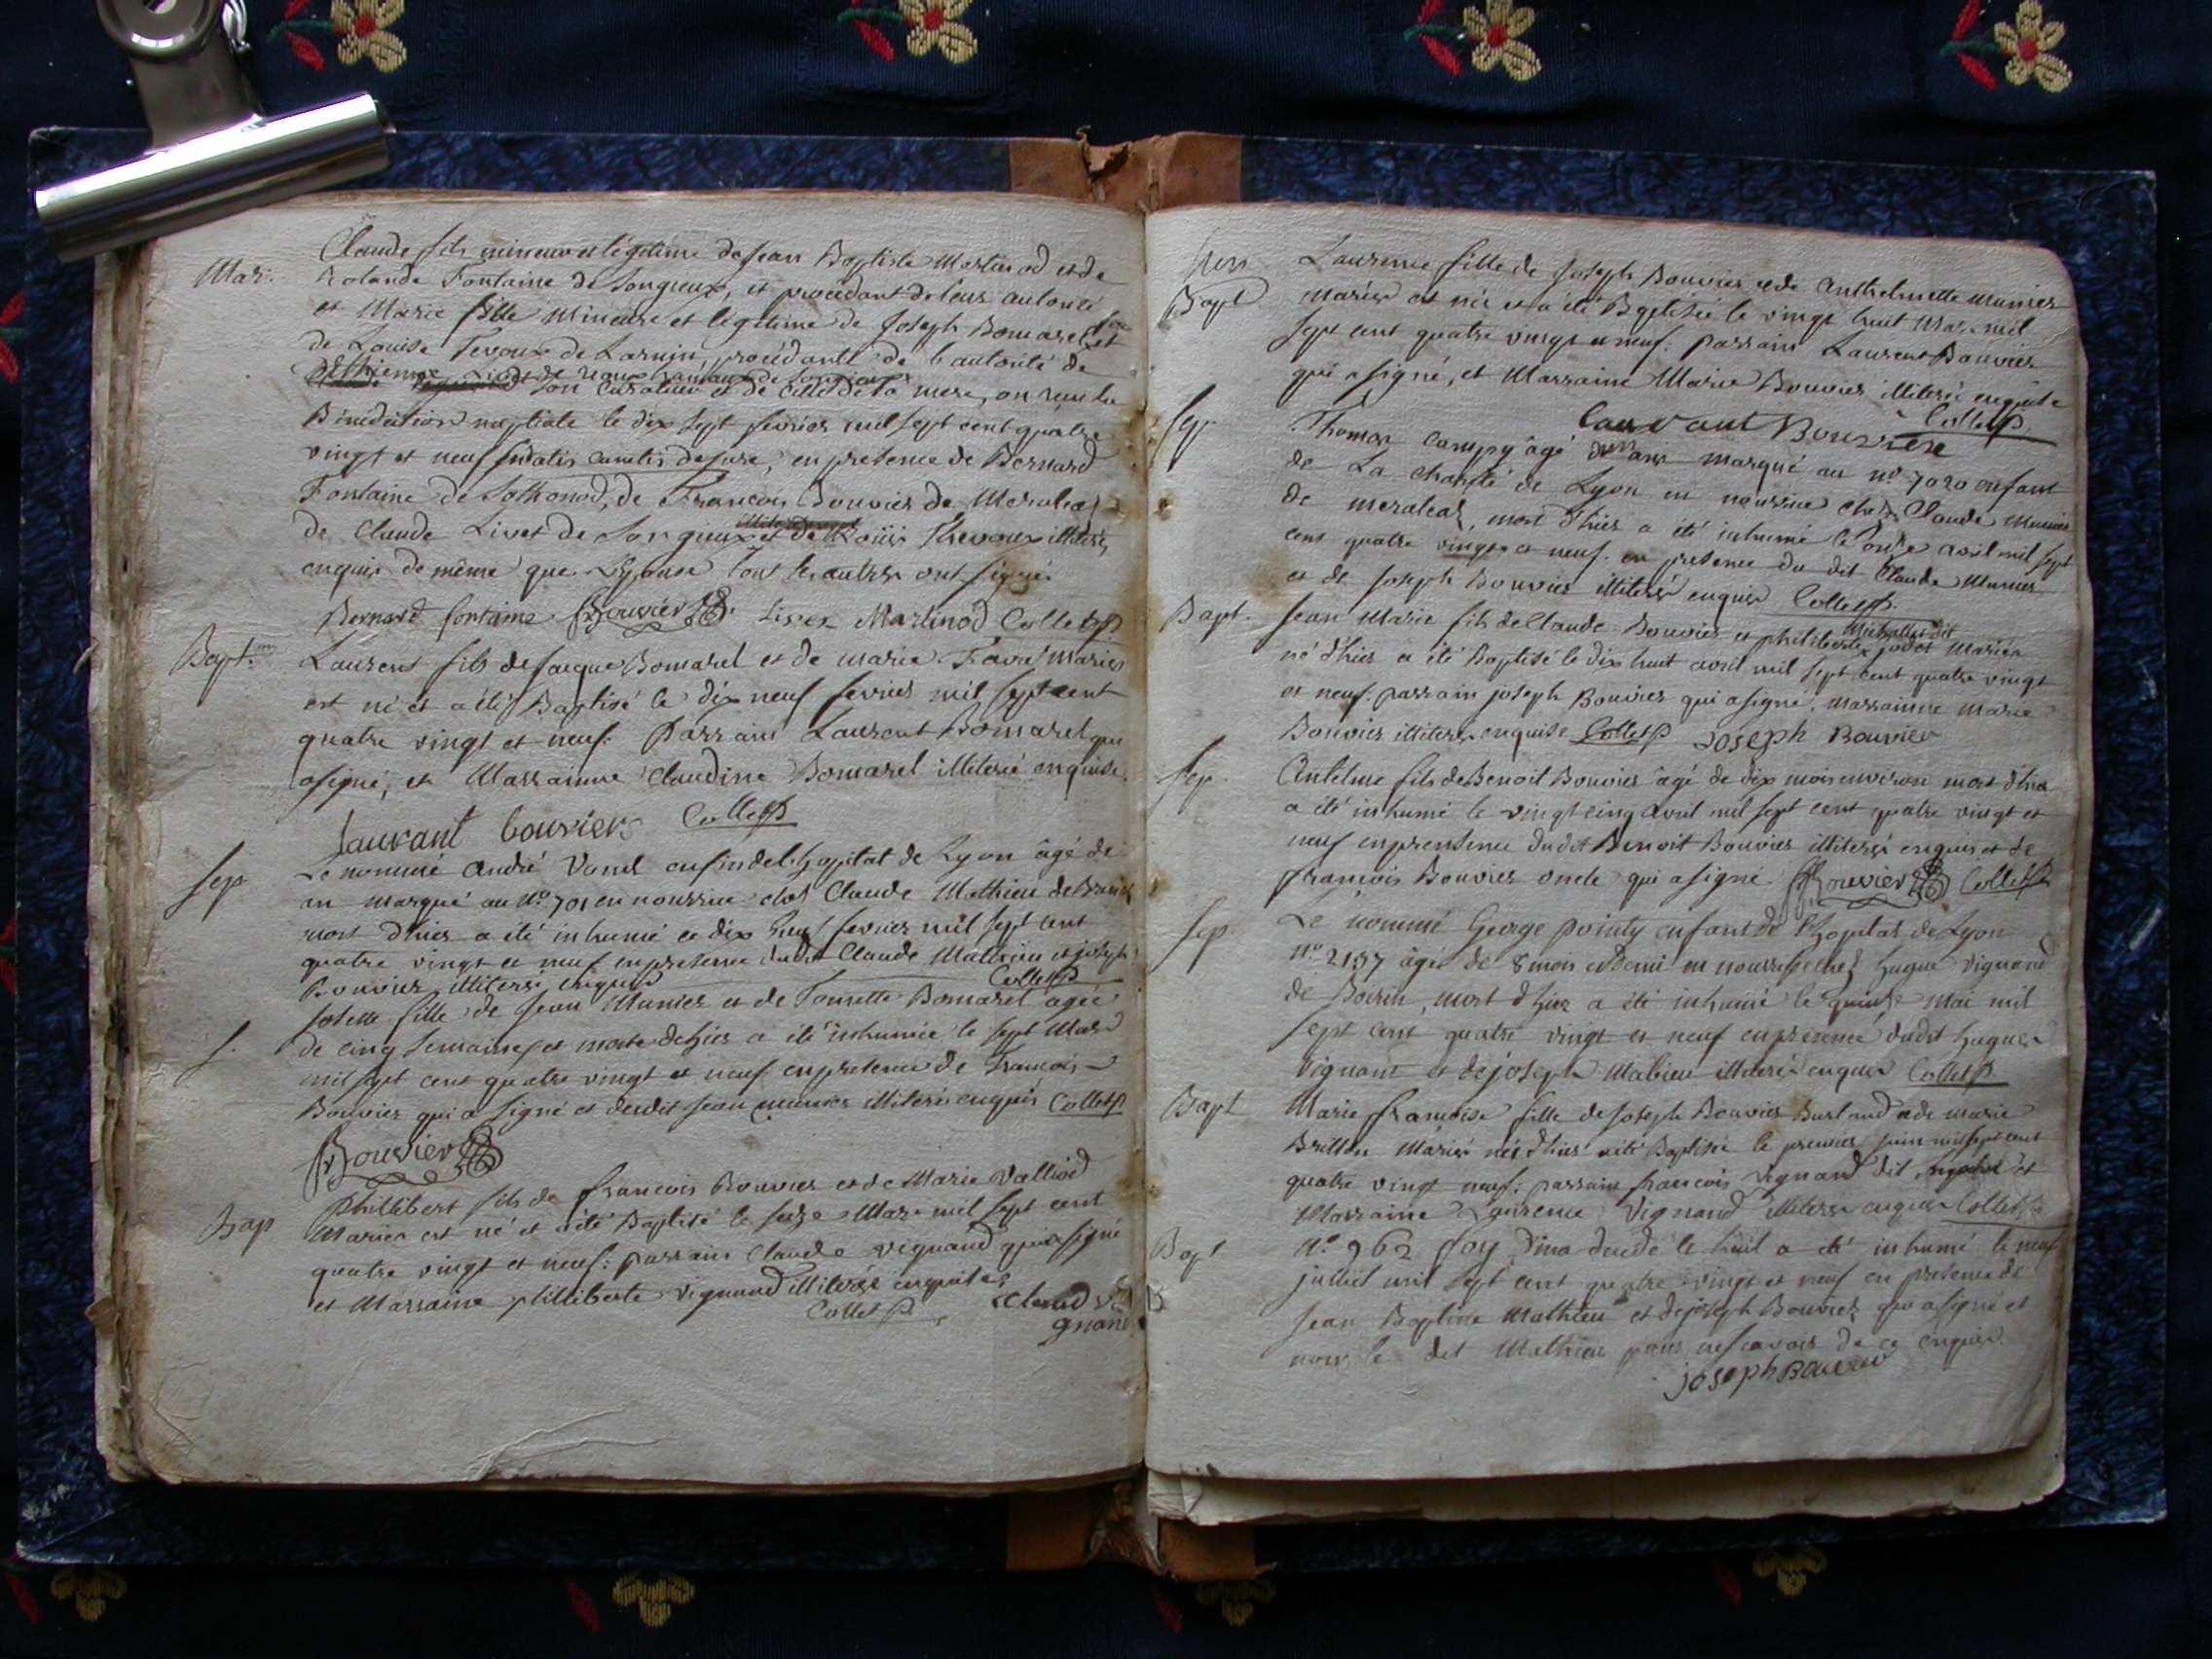 Claude fils mineur et légitime de Jean Baptiste Martinod et de
Mar. Rolande Fontaine de Songieux, et procédant de leur autorité
et Marie fille mineure et légitime de Joseph Bomarel et
de Louise Tevoux de Larnin, procédante de l'autorité de
son curateur et de celle de sa mere, on reçu la
Bénédiction nuptiale le dix sept fevrier mil sept cent quatre
vingt et neuf servatis servandis de jure, en presence de Bernard
Fontaine de Sothonod, de François Bouvier de
de Claude Livet de Songieux et de Louis Thevoux illiteré,
enquis de même que L'Epouse tous les autres ont signé.
Bernard fontaine fBouvier Livet Martinod Collet p
Bapt. Laurent fils de Jacque Bomarel et de marie Favre mariés
est né et a été Baptisé le dix neuf fevrier mil sept cent
quatre vingt et neuf: Parrain Laurent Bomarel qui
a signé, et Marrainne Claudine Bomarel illiterée enquise.
Laurant bouvier Collet p
Sep Le nommé André enfan de l'hopital de Lyon âgé de
un marqué au N.o 701 en nourrice chés Claude Mathieu de
mort d'hier a été inhumé ce dix fevrier mil sept cent
quatre vingt et neuf en presence dudit Claude Mathieu et joseph
Bouvier illiterés enquis Collet p
fille de Jean Munier et de Bomarel âgée
S. de cinq semaines et morte d'hier a été inhumée le sept Mars
mil sept cent quatre vingt et neuf en presence de François
Bouvier qui a signé et dudit Jean munier illiteré enquis Collet p
fBouvier
Bap Phillibert fils de François Bouvier et de Marie Valliod
Mariés est né et a été Baptisé le seize Mars mil sept cent
quatre vingt et neuf: parrain Claude vignand qui a signé
et Marraine phillberte vignand illiterée enquise
Collet p claud vi
gnand
Laurence fille de Joseph Bouvier et de Anthelmette munier
Bapt mariés est née et a été Baptisée le vingt huit Mars mil
sept cent quatre vingt neuf: parrain Laurent Bouvier
qui a signé, et Marraine Marie Bouvier illiterée enquise
Collet p
Laurant Bouvier
Sep Thomas campy âgé ans marqué au n.o 7020 enfant
de La charité de Lyon en nourrice chés Claude munier
de , mort d'hier a été inhumé le onze avril mil sept
cent quatre vingt et neuf en presence du dit Claude Munier
et de Joseph Bouvier illiterés enquis Collet p
Bapt. Jean Marie fils de Claude Bouvier et philiberte jodet mariés
né d'hier a été Baptisé le dix huit avril mil sept cent quatre vingt
et neuf: parrain joseph Bouvier qui a signé, marrainne marie
Bouvier illiterée enquise Collet p joseph Bouvier
Sep. Antelme fils de Benoit Bouvier âgé de dix mois environ mort d'hier
a été inhumé le vingt cinq avril mil sept cent quatre vingt et
neuf en presence dudit Benoit Bouvier illiteré enquis et de
françois Bouvier oncle qui a signé. fBouvier Collet p
Sep Le nommé George pointy enfant de l'hopital de Lyon
n.o 2157 âgé de 8 mois et demi en nourrice chez hugue vignand
de Poisin, mort d'hier a été inhumé le quinze mai mil
sept cent quatre vingt et neuf en presence dudit hugue
vignand et de joseph Mathieu illiterés enquis Collet p
Bapt Marie françoise fille de Joseph Bouvier et de marie
Brillon Mariés née d'hier a été Baptisée le premier juin mil sept cent
quatre vingt neuf: parrain françois vignand dit et
Marraine Laurence Vignand illiterés enquis Collet p
Bapt N.o 962 foy décédé le huit a été inhumé le neuf
juillet mil sept cent quatre vingt et neuf en presence de
Jean Baptiste Mathieu et de joseph Bouvier qui a signé et
non le dit Mathieu pour ne sçavoir de ce enquis.
joseph Bouvier